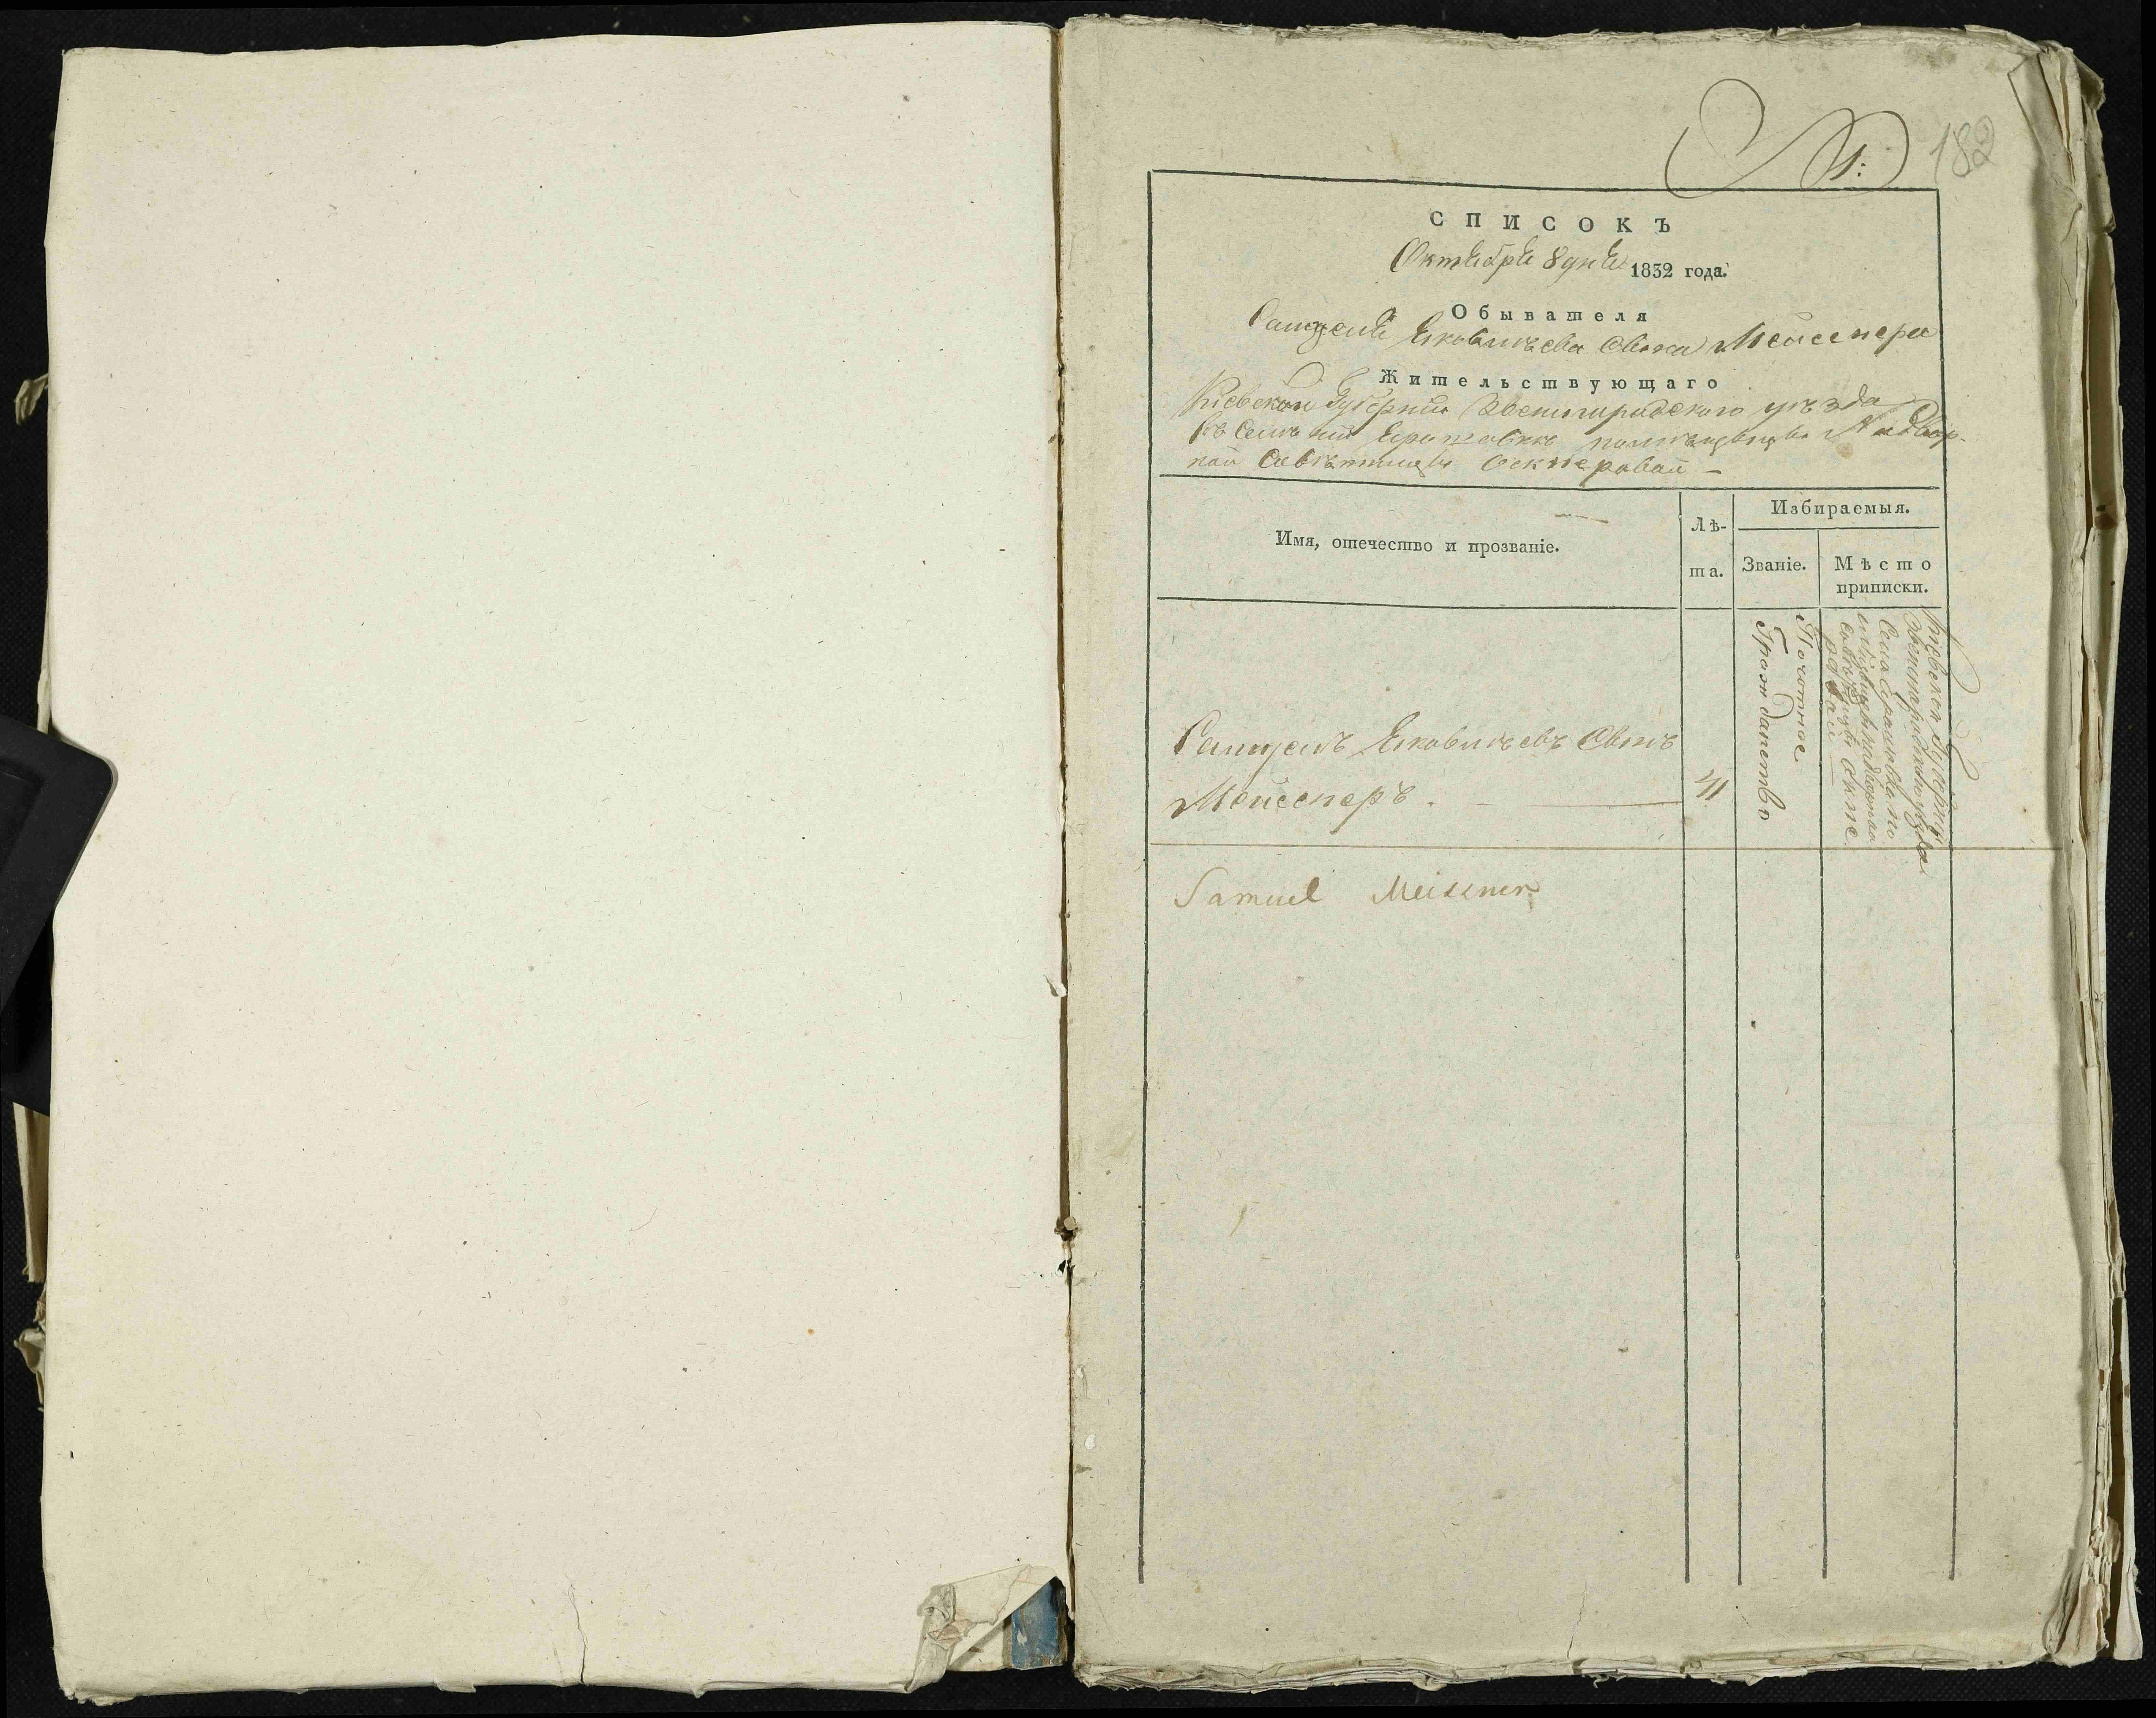 182
СПИСОКЪ
Октября 8 дня 1832 года.
Обывателя
Самуеля Яковлева сына Мейснера
Жительствующаго
Киевской Губернии Звенигородского уезда
въ Селении помѣщицы Надвор-
ной Совѣтницы
Имя, отечество и прозваніе.
Лѣ-
та.
Избираемыя.
Званіе.
Мѣсто
приписки.
Самуелъ Яковлевъ Сынъ
Мейснеръ.
41
Почотное
Гражданство
Киевской Губернии
Звенигородского уезда
Села
Samuel Meissner